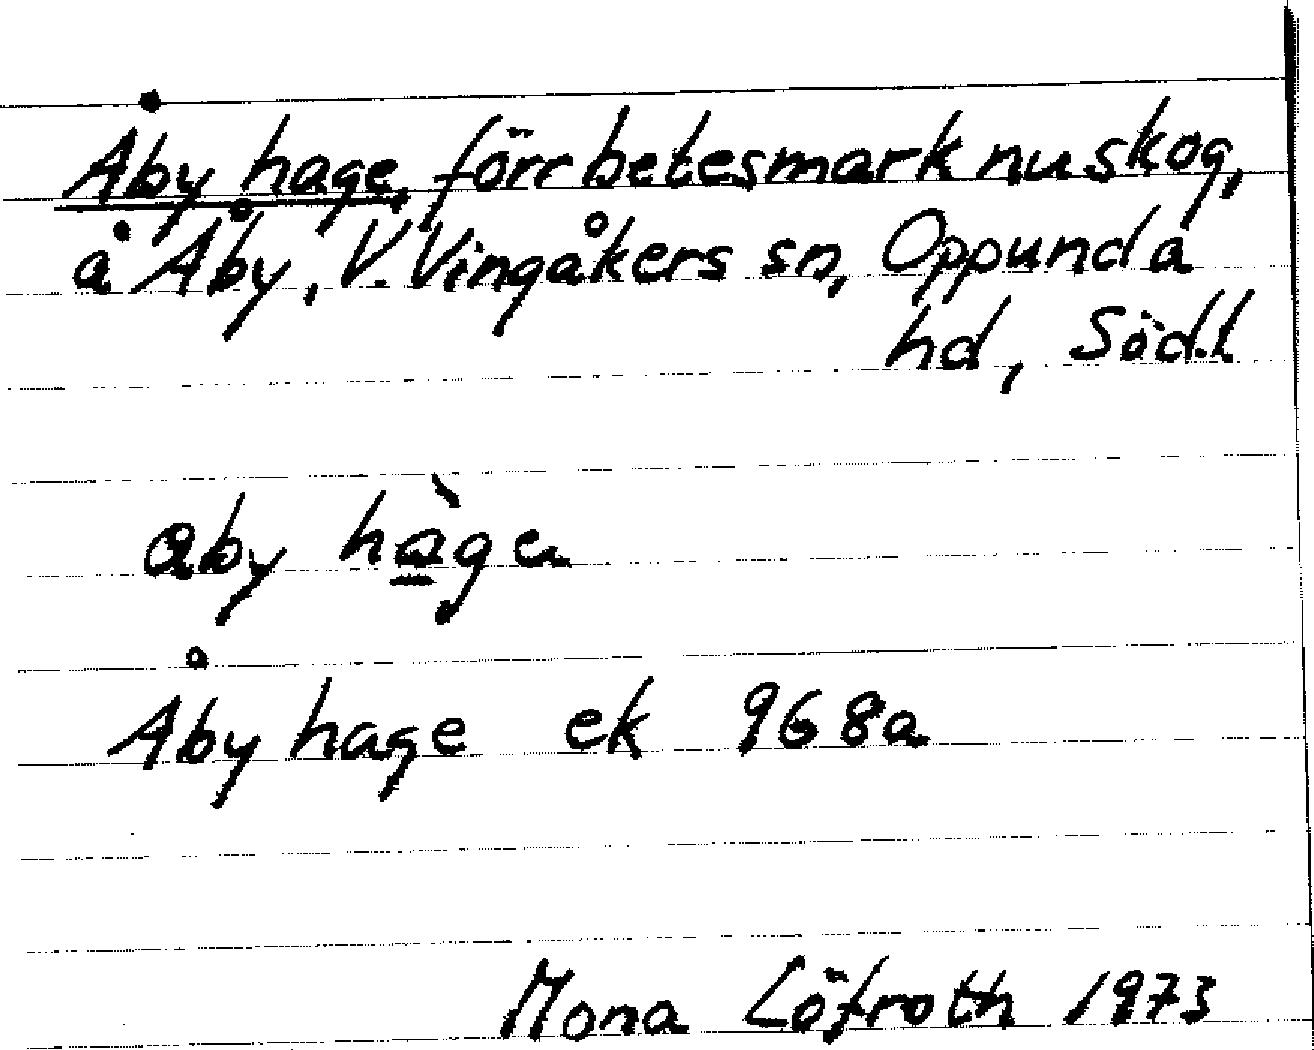 Åby hage, förr betesmark nu skog,
å Åby, V. Vingåkers sn, Oppunda
hd, Södl.
åby hà̱ga
Åby hage ek 968a
Mona Löfroth 1973